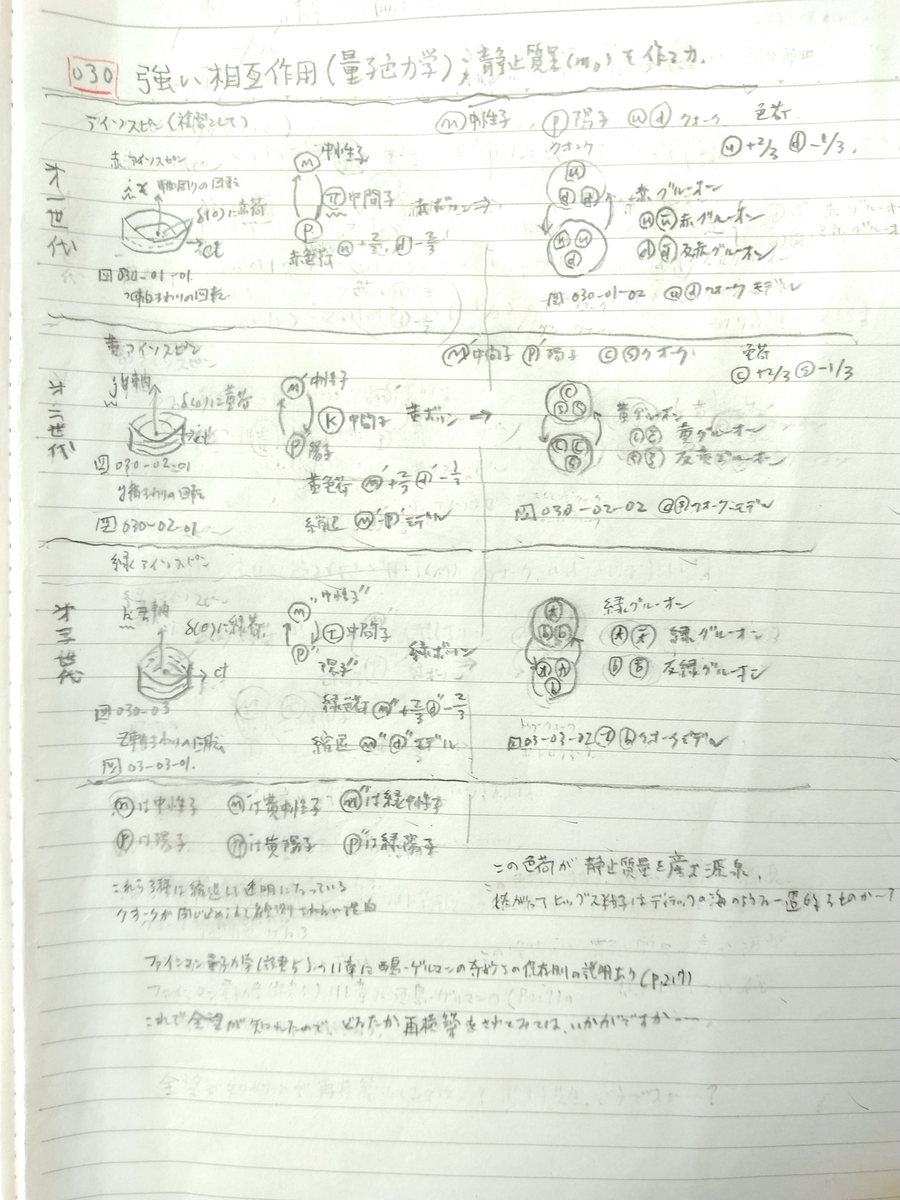 030 強い相互作用(量子色力学);静止質量(m₀)を作る力
アイソスピン(複習として) n 中性子 p 陽子 u d クォーク 色荷
u +2/3 d -1/3
第一世代
赤アイソスピン
ix 軸周りの回転
δ(0)に赤荷
ct
図030-01-01
x軸まわりの回転
n 中性子
π 中間子
p
赤色荷
赤ボソン→
クォーク
u d d
u u d
赤グルーオン
u ū 赤グルーオン
d d̄ 反赤グルーオン
図030-01-02 u d クォークモデル
第二世代
黄アイソスピン
n' 中間子 p' 陽子 c s クォーク 色荷
c +2/3 s -1/3
jy軸
δ(0)に黄荷
ct
図030-02-01
y軸まわりの回転
図030-02-01
n' 中性子
K 中間子
p' 陽子
黄ボソン→
黄色荷
縮退 n' p' モデル
c s s
c c s
黄グルーオン
c c̄ 黄グルーオン
s s̄ 反黄グルーオン
図030-02-02 c s クォークモデル
第三世代
緑アイソスピン
kz軸
δ(0)に緑荷
ct
図030-03
z軸まわりに回転
図03-03-01.
n "中性子"
中間子
p" 陽子"
緑ボソン
緑色荷
縮退 モデル
t b b
t t b
緑グルーオン
t t̄ 緑グルーオン
b b̄ 反緑グルーオン
図03-03-02 t b クォークモデル
n は中性子 n' は黄中性子 n" は緑中性子
p は陽子 は黄陽子 p" は緑陽子
これら3種は縮退し透明になっている
クォークが閉じ込められて観測されない理由
この色荷が静止質量を産む源泉.
従がってヒッグス粒子はディラックの海のような一過的なものか〜?
ファインマン量子力学(5)の11章に西島-ゲルマンの奇妙さの保存則の説明あり(P.217)
これで全望が知れたので、どなたか再構築をされてみては、いかがですか〜